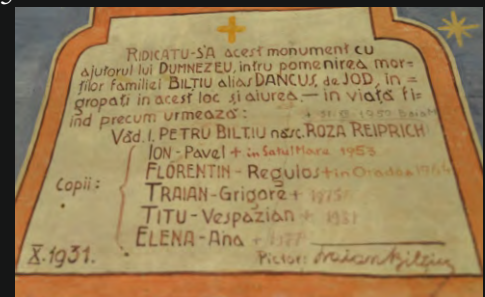 RIDICATU-S'A acest monument cu
ajutorul lui DUMNEZEU, intru pomenirea mor=
ților familiei BILȚIU alias DANCUȘ, de JOD, în=
gropați in acest loc și aiurea. — in viață fi=
ind precum urmează:
Văd. I. PETRU BILȚIU născ. ROZA REIPRICH
Copii:
ION-Pavel + in Satul Mare 1953
FLORENTIN - Regulos + in Oradea 1964
TRAIAN-Grigore + 1975
TITU-Vespazian + 1931
ELENA-Ana +
X.1931.
Pictor: Traian Bilțiu